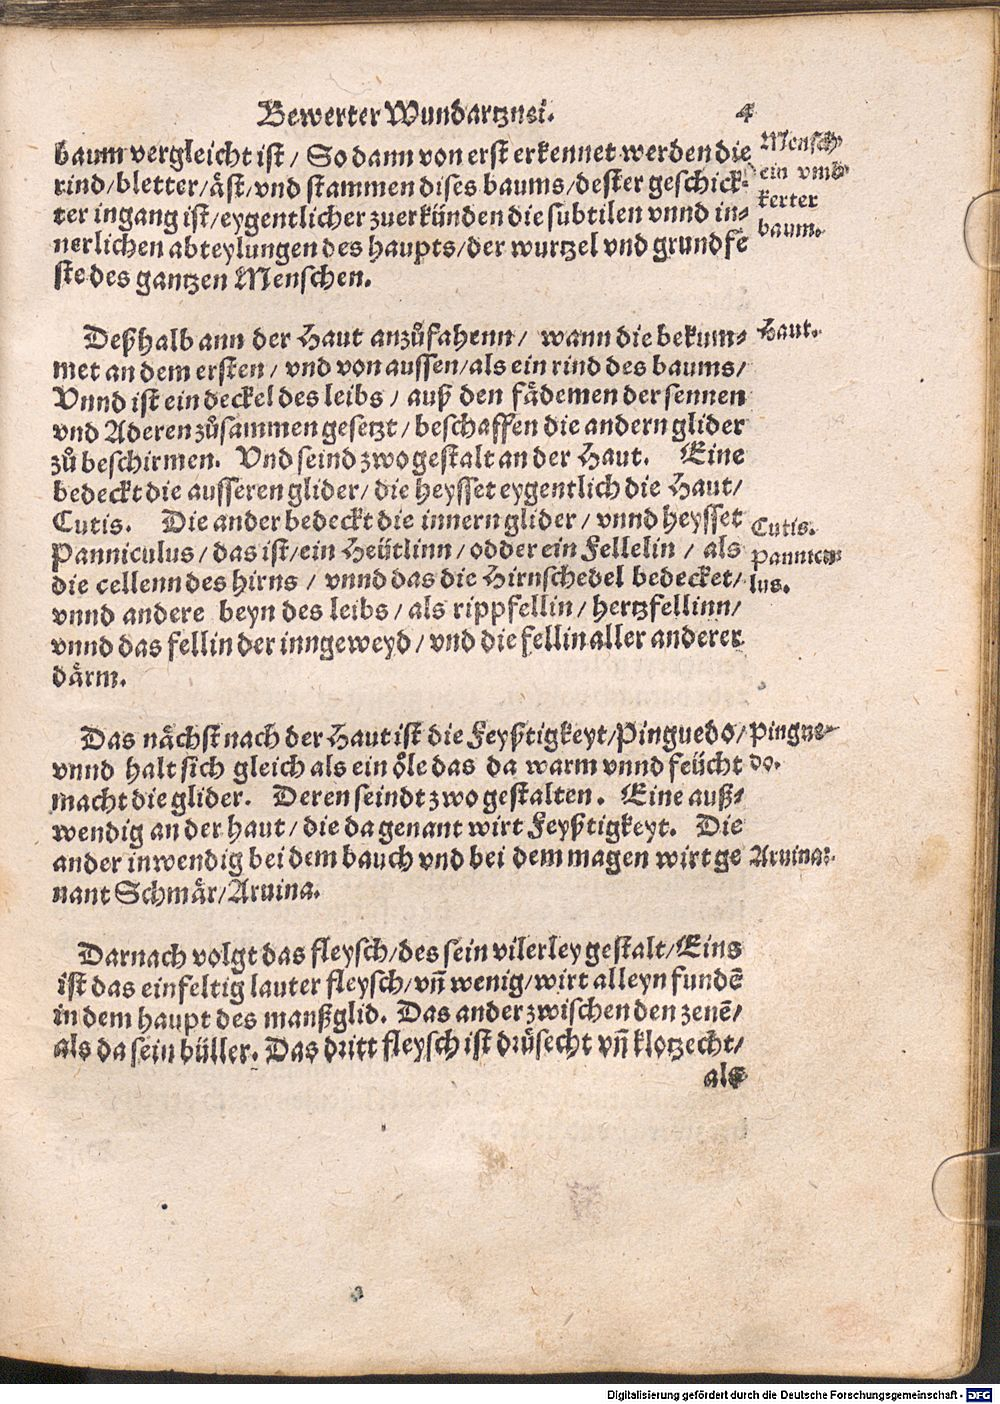 Bewerter Wundartznei. 4
baum vergleicht ist / So dann von erst erkennet werden die
rind/bletter/äst/vnd stammen dises baums/dester geschick⸗
ter ingang ist/eygentlicher zuerkünden die subtilen vnnd in⸗
nerlichen abteylungen des haupts/der wurtzel vnd grundfe
ste des gantzen Menschen.
Mensch
ein vmb
kerter
baum.
Deßhalb ann der Haut anzůfahenn / wann die bekum⸗
met an dem ersten / vnd von aussen/als ein rind des baums/
Vnnd ist ein deckel des leibs / auß den fädemen der sennen
vnd Aderen zůsammen gesetzt / beschaffen die andern glider
zů beschirmen. Vnd seind zwo gestalt an der Haut. Eine
bedeckt die ausseren glider / die heysset eygentlich die Haut/
Cutis. Die ander bedeckt die innern glider / vnnd heysset
Panniculus / das ist/ein Heütlinn / odder ein Fellelin / als
die cellenn des hirns / vnnd das die Hirnschedel bedecket/
vnnd andere beyn des leibs / als rippfellin / hertzfellinn/
vnnd das fellin der inngeweyd / vnd die fellin aller anderer
därm.
Haut.
Cutis.
Pannicu⸗
lus.
Das nächst nach der Haut ist die Feyßtigkeyt/Pinguedo/
vnnd halt sich gleich als ein öle das da warm vnnd feücht
macht die glider. Deren seindt zwo gestalten. Eine auß⸗
wendig an der haut / die da genant wirt Feyßtigkeyt. Die
ander inwendig bei dem bauch vnd bei dem magen wirt ge
nant Schmär/Aruina.
Pingue⸗
do.
Aruina.
Darnach volgt das fleysch/des sein vilerley gestalt/Eins
ist das einfeltig lauter fleysch/vñ wenig/wirt alleyn fundẽ
in dem haupt des manßglid. Das ander zwischen den zenẽ/
als da sein büller. Das dritt fleysch ist drüsecht vñ klotzecht/
als
Digitalisierung gefördert durch die Deutsche Forschungsgemeinschaft - DFG